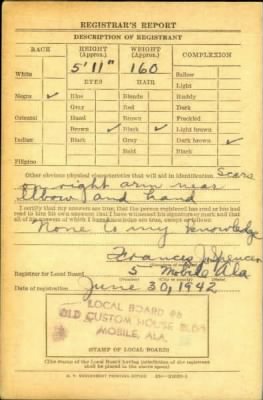 REGISTRAR'S REPORT
DESCRIPTION OF REGISTRANT
RACE HEIGHT (Approx.) WEIGHT (Approx.) COMPLEXION
5' 11" 160
White EYES HAIR Sallow
Light
Negro ✓ Blue Blonde Ruddy
Gray Red Dark
Oriental Hazel Brown Freckled
Brown ✓ Black ✓ Light brown
Indian Black Gray Dark brown ✓
Bald Black
Filipino
Other obvious physical characteristics that will aid in identification Scars
right arm near
Elbow and hand
I certify that my answers are true; that the person registered has read or has had
read to him his own answers; that I have witnessed his signature or mark and that
all of his answers of which I have knowledge are true, except as follows:
None to my knowledge
Frances J. Spencer
Registrar for Local Board 5 Mobile Ala
Date of registration June 30, 1942
LOCAL BOARD
OLD CUSTOM HOUSE BLDG
MOBILE, ALA.
STAMP OF LOCAL BOARD
(The stamp of the Local Board having jurisdiction of the registrant
shall be placed in the above space)
U. S. GOVERNMENT PRINTING OFFICE